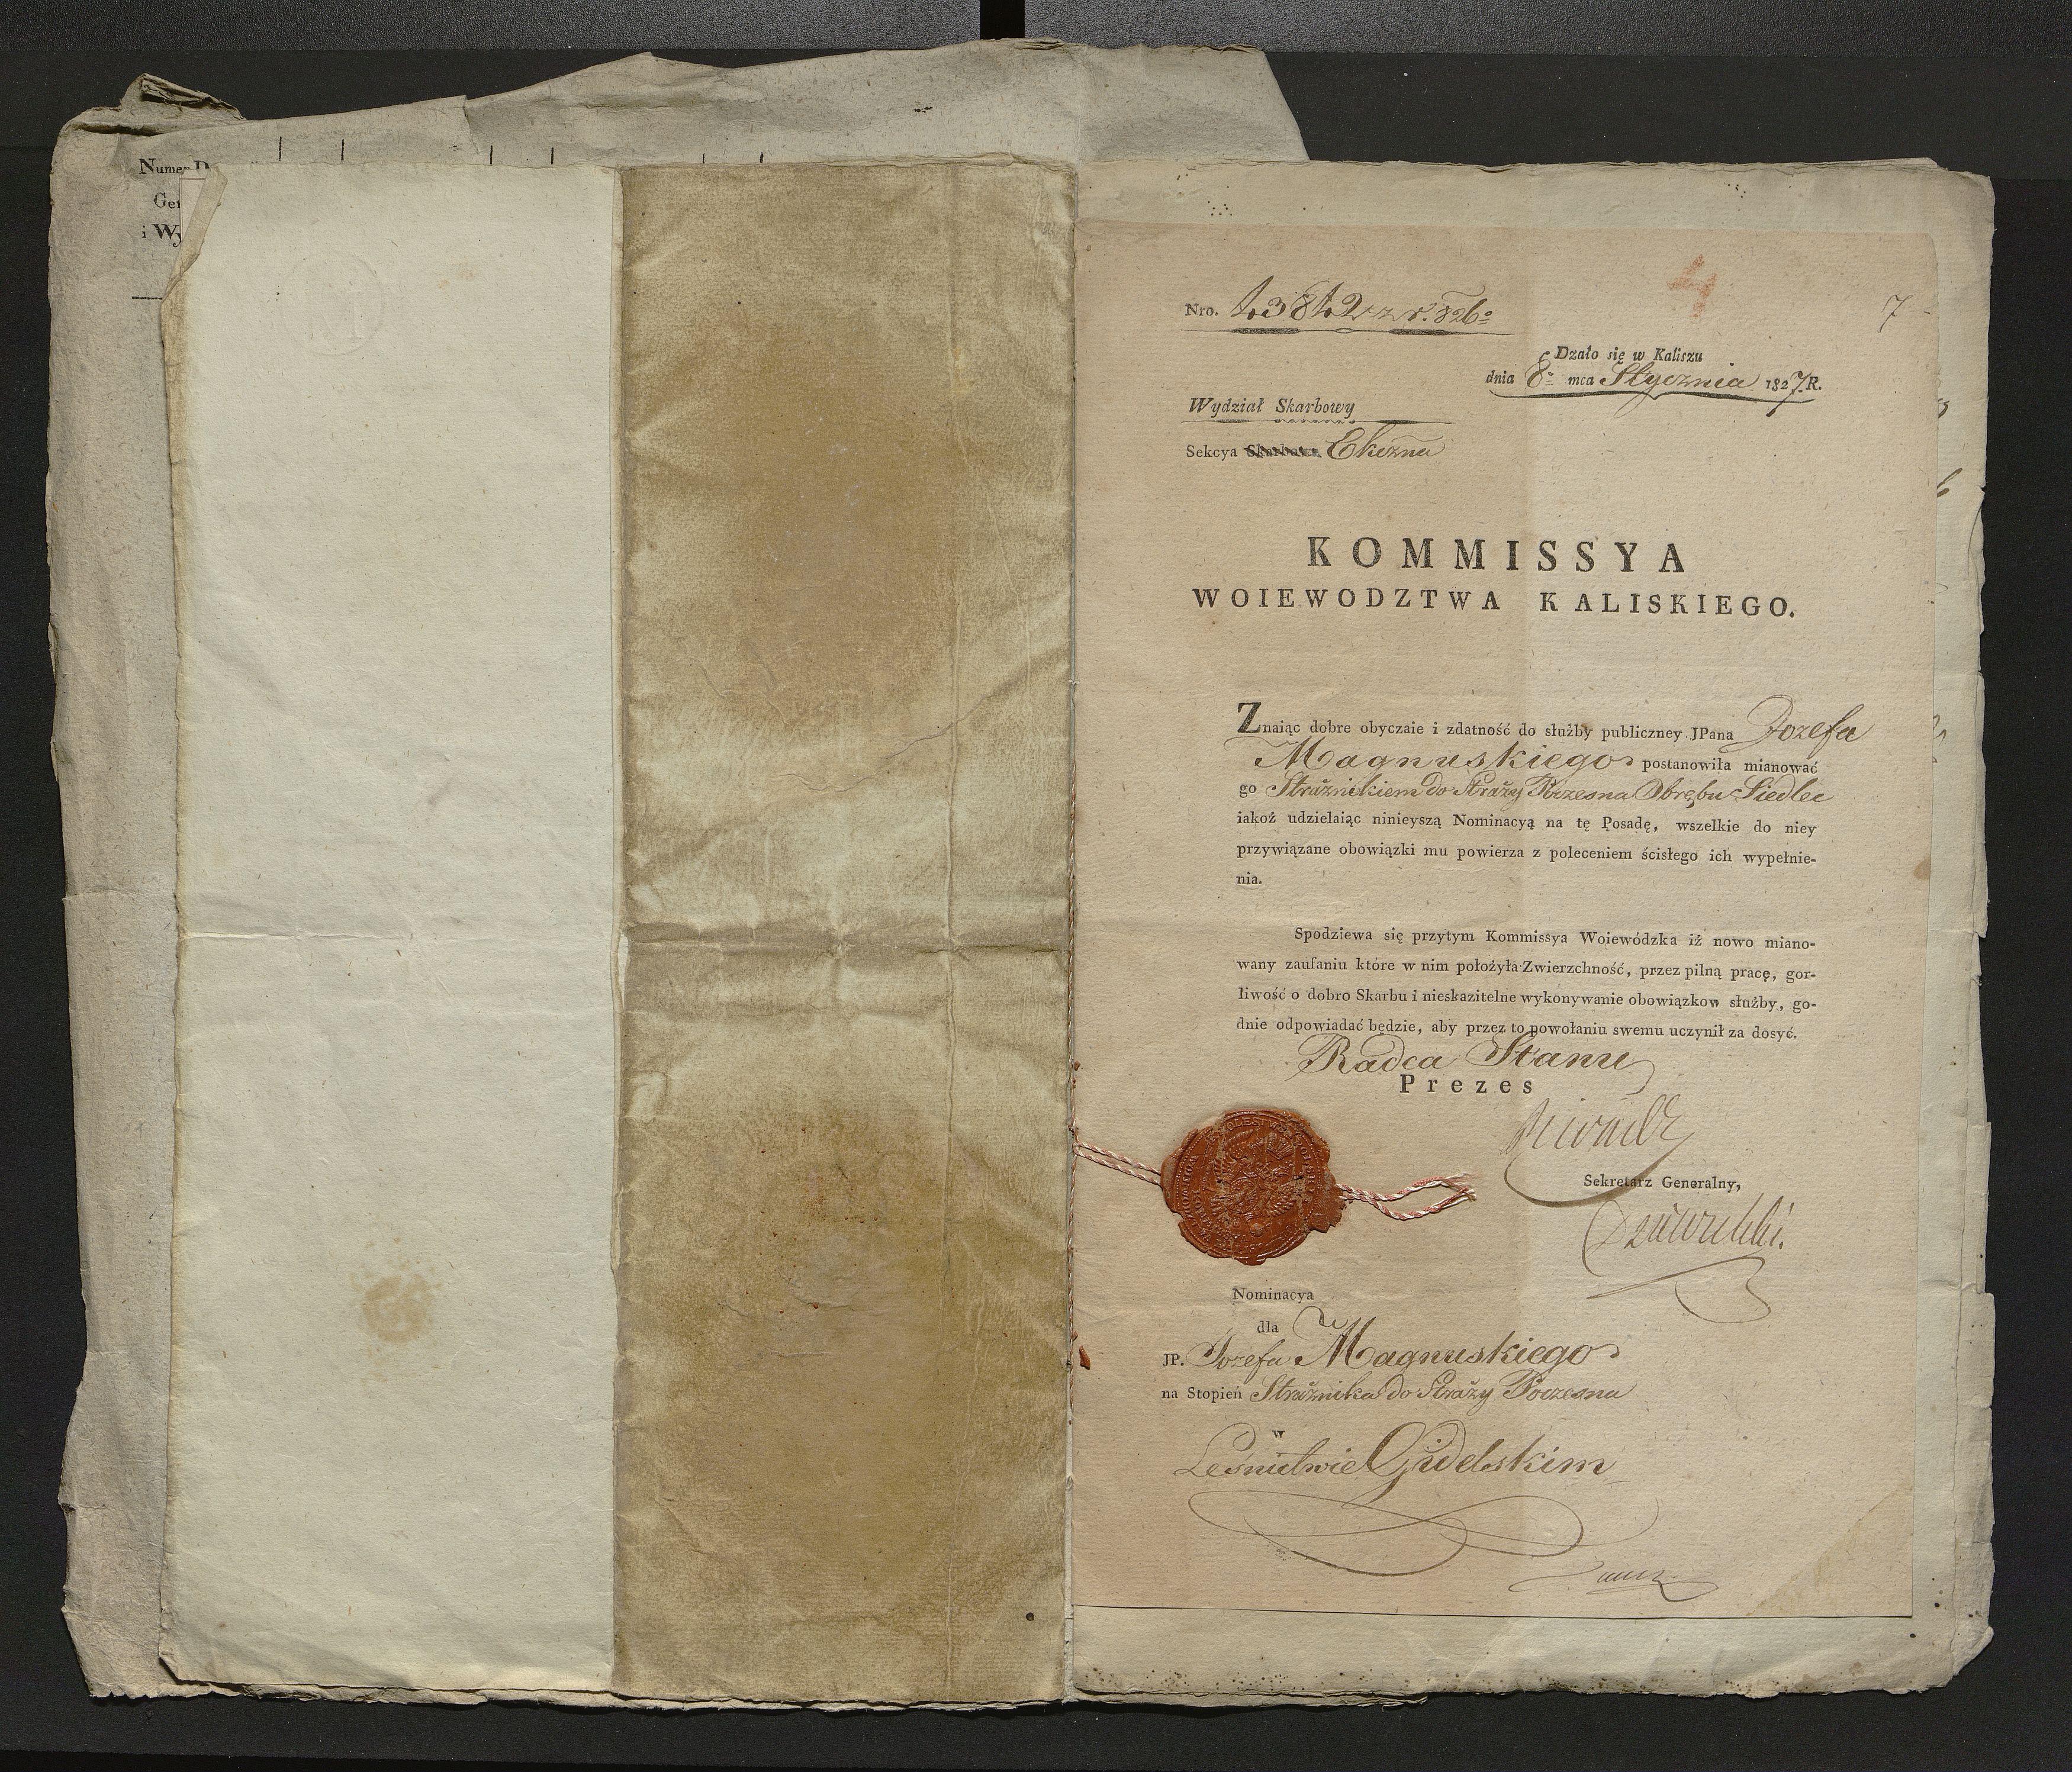 Numer D
Gen
i Wy
4
7
Nro. 43842 z r. 826
Dzało się w Kaliszu
dnia 8 mca Stycznia 1827. R.
Wydział Skarbowy
Sekcya Skarbowa Ekczna
KOMMISSYA
WOIEWODZTWA KALISKIEGO.
Znaiąc dobre obyczaie i zdatność do służby publiczney JPana Jozefa
Magnuskiego postanowiła mianować
go Strażnikiem do Straży Poczesna Obrębu Siedlec
iakoż udzielaiąc ninieyszą Nominacyą na tę Posadę, wszelkie do niey
przywiązane obowiązki mu powierza z poleceniem ścisłego ich wypełnie-
nia.
Spodziewa się przytym Kommissya Woiewódzka iż nowo miano-
wany zaufaniu które w nim położyła Zwierzchność, przez pilną pracę, gor-
liwość o dobro Skarbu i nieskazitelne wykonywanie obowiązkow służby, go-
dnie odpowiadać będzie, aby przez to powołaniu swemu uczynił za dosyć.
Radca Stanu
Prezes
Sekretarz Generalny,
Nominacya
dla
JP. Jozefa Magnuskiego
na Stopień Strażnika do Straży Poczesna
w
Leśnictwie Gidelskim